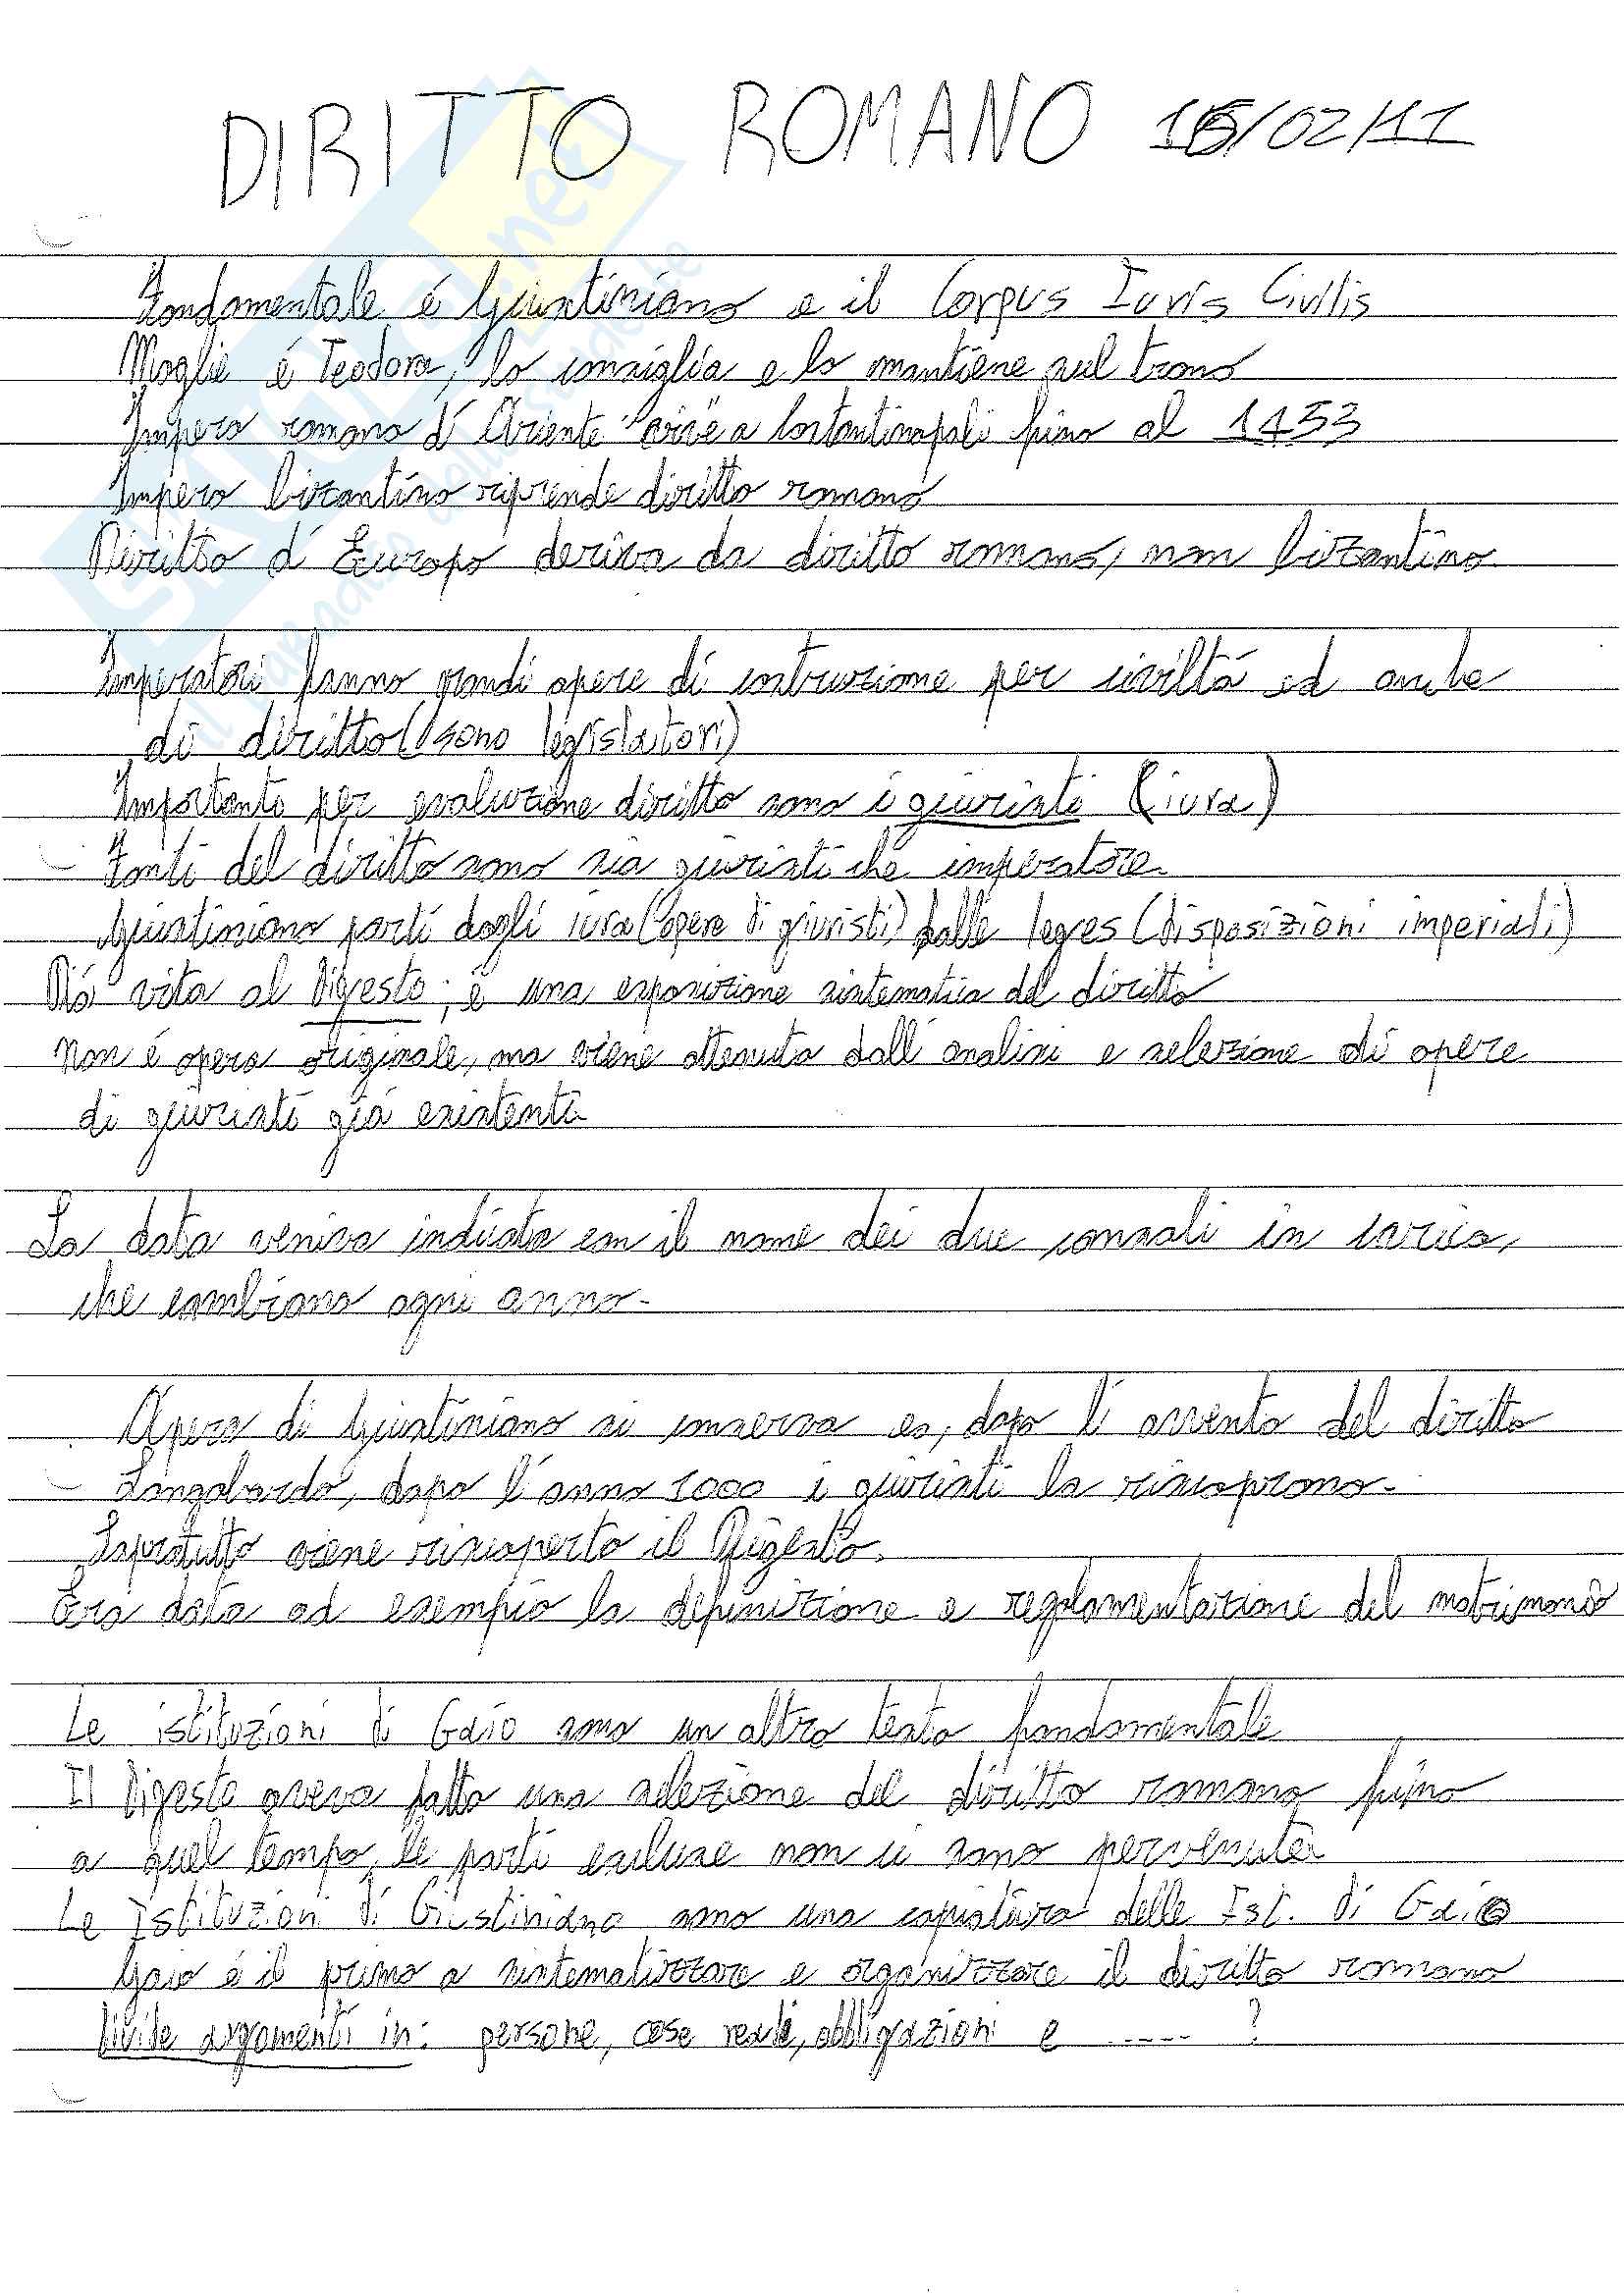 DIRITTO ROMANO 16/02/11
Fondamentale é Giustiniano e il Corpus Iuris Civilis
Moglie é Teodora, lo consiglia e lo mantiene sul trono
Impero romano d'Oriente vive a Costantinopoli fino al 1453
Impero bizantino riprende diritto romano
Diritto d'Europa deriva da diritto romano, non bizantino
Imperatori fanno grandi opere di costruzione per civiltá ed anche
di diritto (sono legislatori)
Importante per evoluzione diritto sono i giuristi (iura)
Fonti del diritto sono sia giuristi che imperatore.
Giustiniano partí dagli iura (opere di giuristi) dalle leges (disposizioni imperiali)
Dá vita al Digesto; é una esposizione sistematica del diritto
Non é opera originale, ma viene ottenuta dall'analisi e selezione di opere
di giuristi giá esistenti
La data veniva indicata con il nome dei due consoli in carica,
che cambiano ogni anno.
Opera di Giustiniano si conserva e, dopo l'avvento del diritto
Longobardo, dopo l'anno 1000 i giuristi la riscoprono.
Sopratutto viene riscoperto il Digesto.
Era data ad esempio la definizione e regolamentazione del matrimonio
Le istituzioni di Gaio sono un altro testo fondamentale
Il Digesto aveva fatto una selezione del diritto romano fino
a quel tempo, le parti escluse non ci sono pervenute
Le Istituzioni di Giustiniano sono una copiatura delle Ist. di Gaio
Gaio é il primo a sistematizzare e organizzare il diritto romano
Divide argomenti in: persone, cose reali, obbligazioni e ----- ?